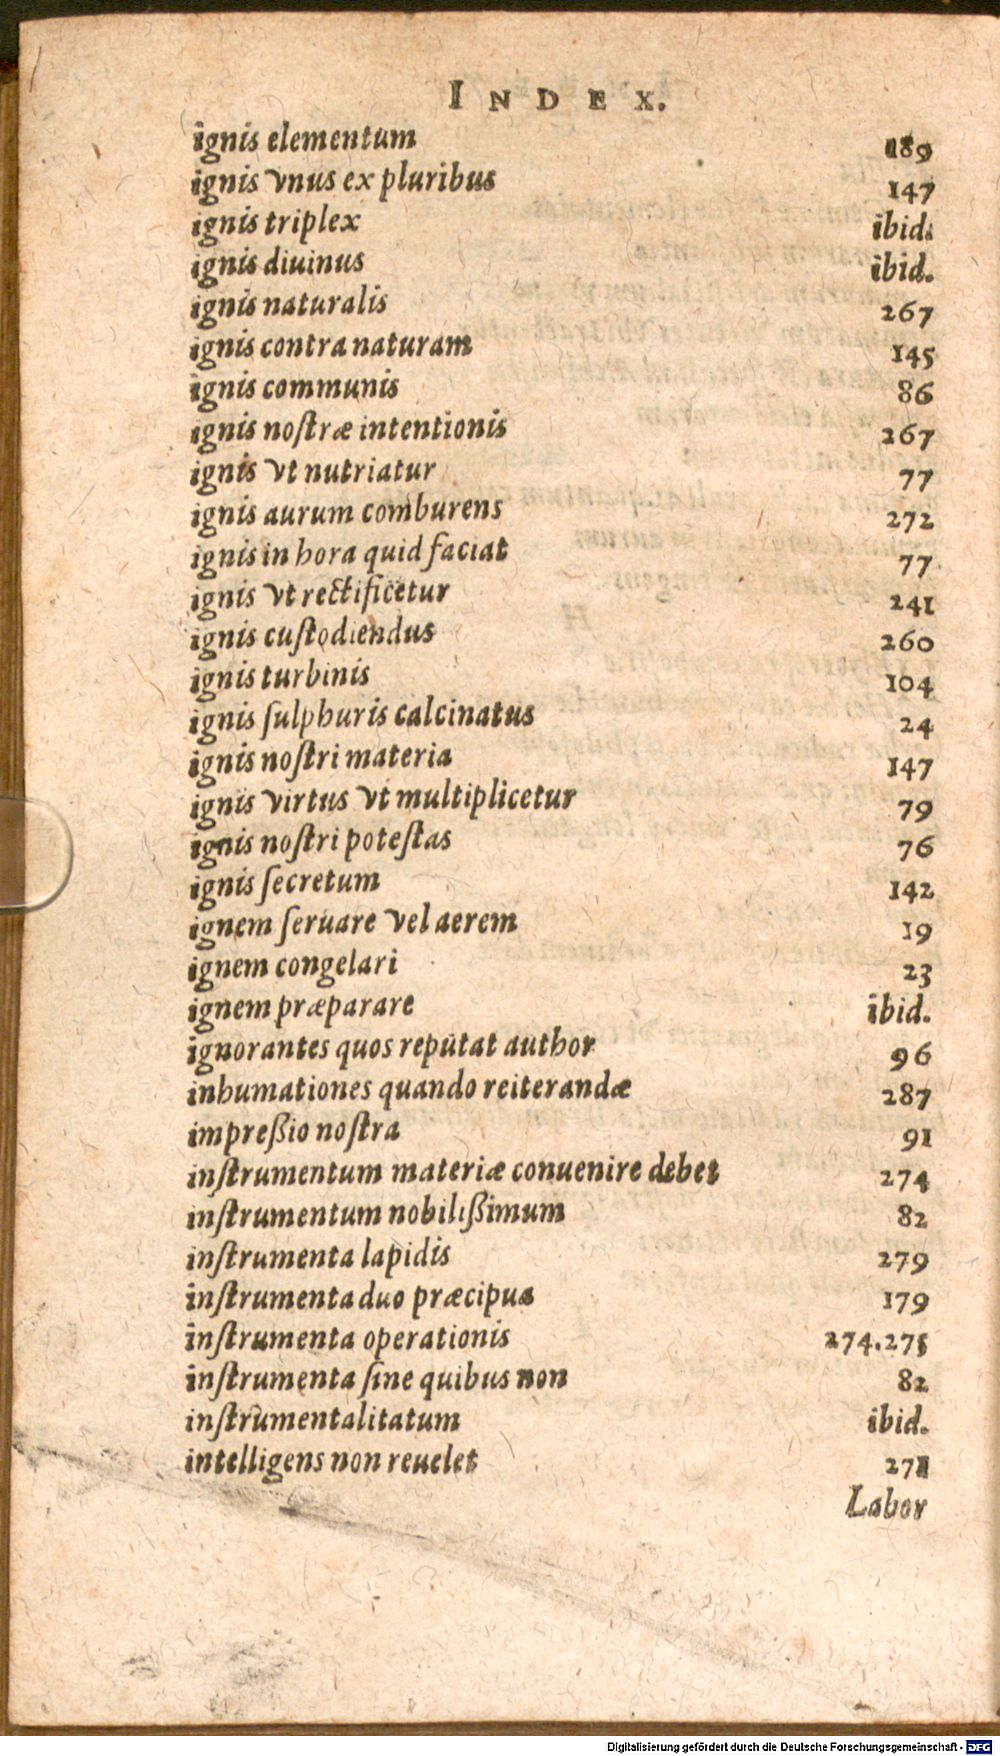 INDEX.
ignis elementum 189
ignis vnus ex pluribus 147
ignis triplex ibid.
ignis diuinus ibid.
ignis naturalis 267
ignis contra naturam 145
ignis communis 86
ignis noſtræ intentionis 267
ignis vt nutriatur 77
ignis aurum comburens 272
ignis in hora quid faciat 77
ignis vt rectificetur 241
ignis cuſtodiendus 260
ignis turbinis 104
ignis ſulphuris calcinatus 24
ignis noſtri materia 147
ignis virtus vt multiplicetur 79
ignis noſtri poteſtas 76
ignis ſecretum 142
ignem ſeruare vel aerem 19
ignem congelari 23
ignem præparare ibid.
ignorantes quos reputat author 96
inhumationes quando reiterandæ 287
impreßio noſtra 91
inſtrumentum materiæ conuenire debet 274
inſtrumentum nobilißimum 82
inſtrumenta lapidis 279
inſtrumenta duo præcipua 179
inſtrumenta operationis 274.275
inſtrumenta ſine quibus non 82
inſtrumentalitatum ibid.
intelligens non reuelet 271
Labor
Digitalisierung gefördert durch die Deutsche Forschungsgemeinschaft - DFG